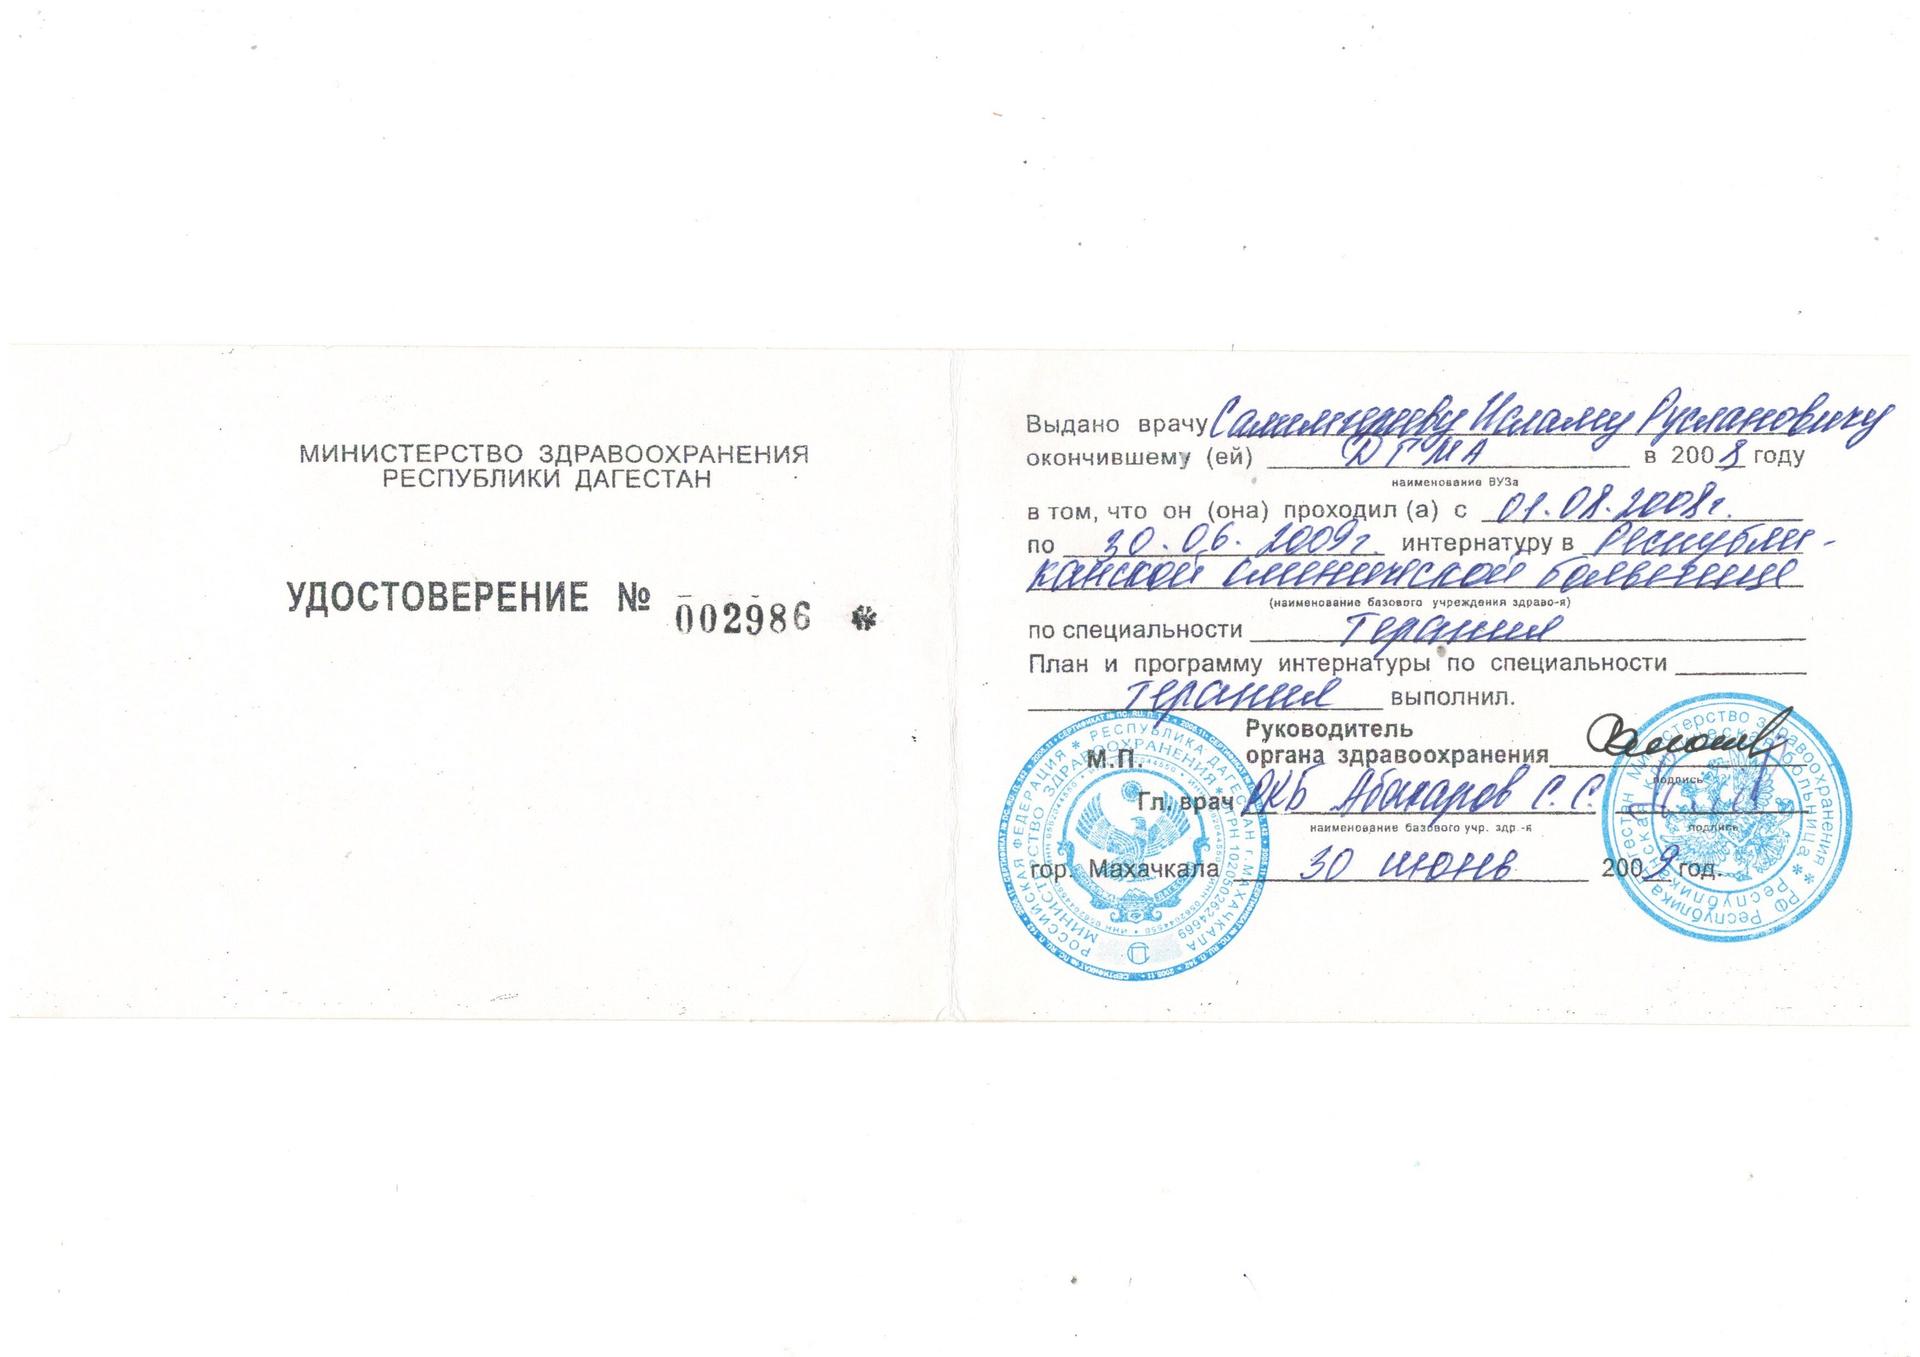 МИНИСТЕРСТВО ЗДРАВООХРАНЕНИЯ
РЕСПУБЛИКИ ДАГЕСТАН
УДОСТОВЕРЕНИЕ № 002986 *
Выдано врачу Исламу Руслановичу
окончившему (ей) ДГМА в 2008 году
наименование ВУЗа
в том, что он (она) проходил (а) с 01.08.2008г.
по 30.06.2009г. интернатуру в Республи-
канской клинической больнице
(наименование базового учреждения здраво-я)
по специальности Терапия
План и программу интернатуры по специальности
терапия выполнил.
Руководитель
М.П. органа здравоохранения
подпись
Гл. врач РКБ Абакаров С. С.
наименование базового учр. здр.-я подпись
гор. Махачкала 30 июнь 2009 год.
РОССИЙСКАЯ ФЕДЕРАЦИЯ * РЕСПУБЛИКА ДАГЕСТАН г. МАХАЧКАЛА
МИНИСТЕРСТВО ЗДРАВООХРАНЕНИЯ * ОГРН 1020502624669
РФ Республика Дагестан Министерство здравоохранения *
Республиканская клиническая больница *